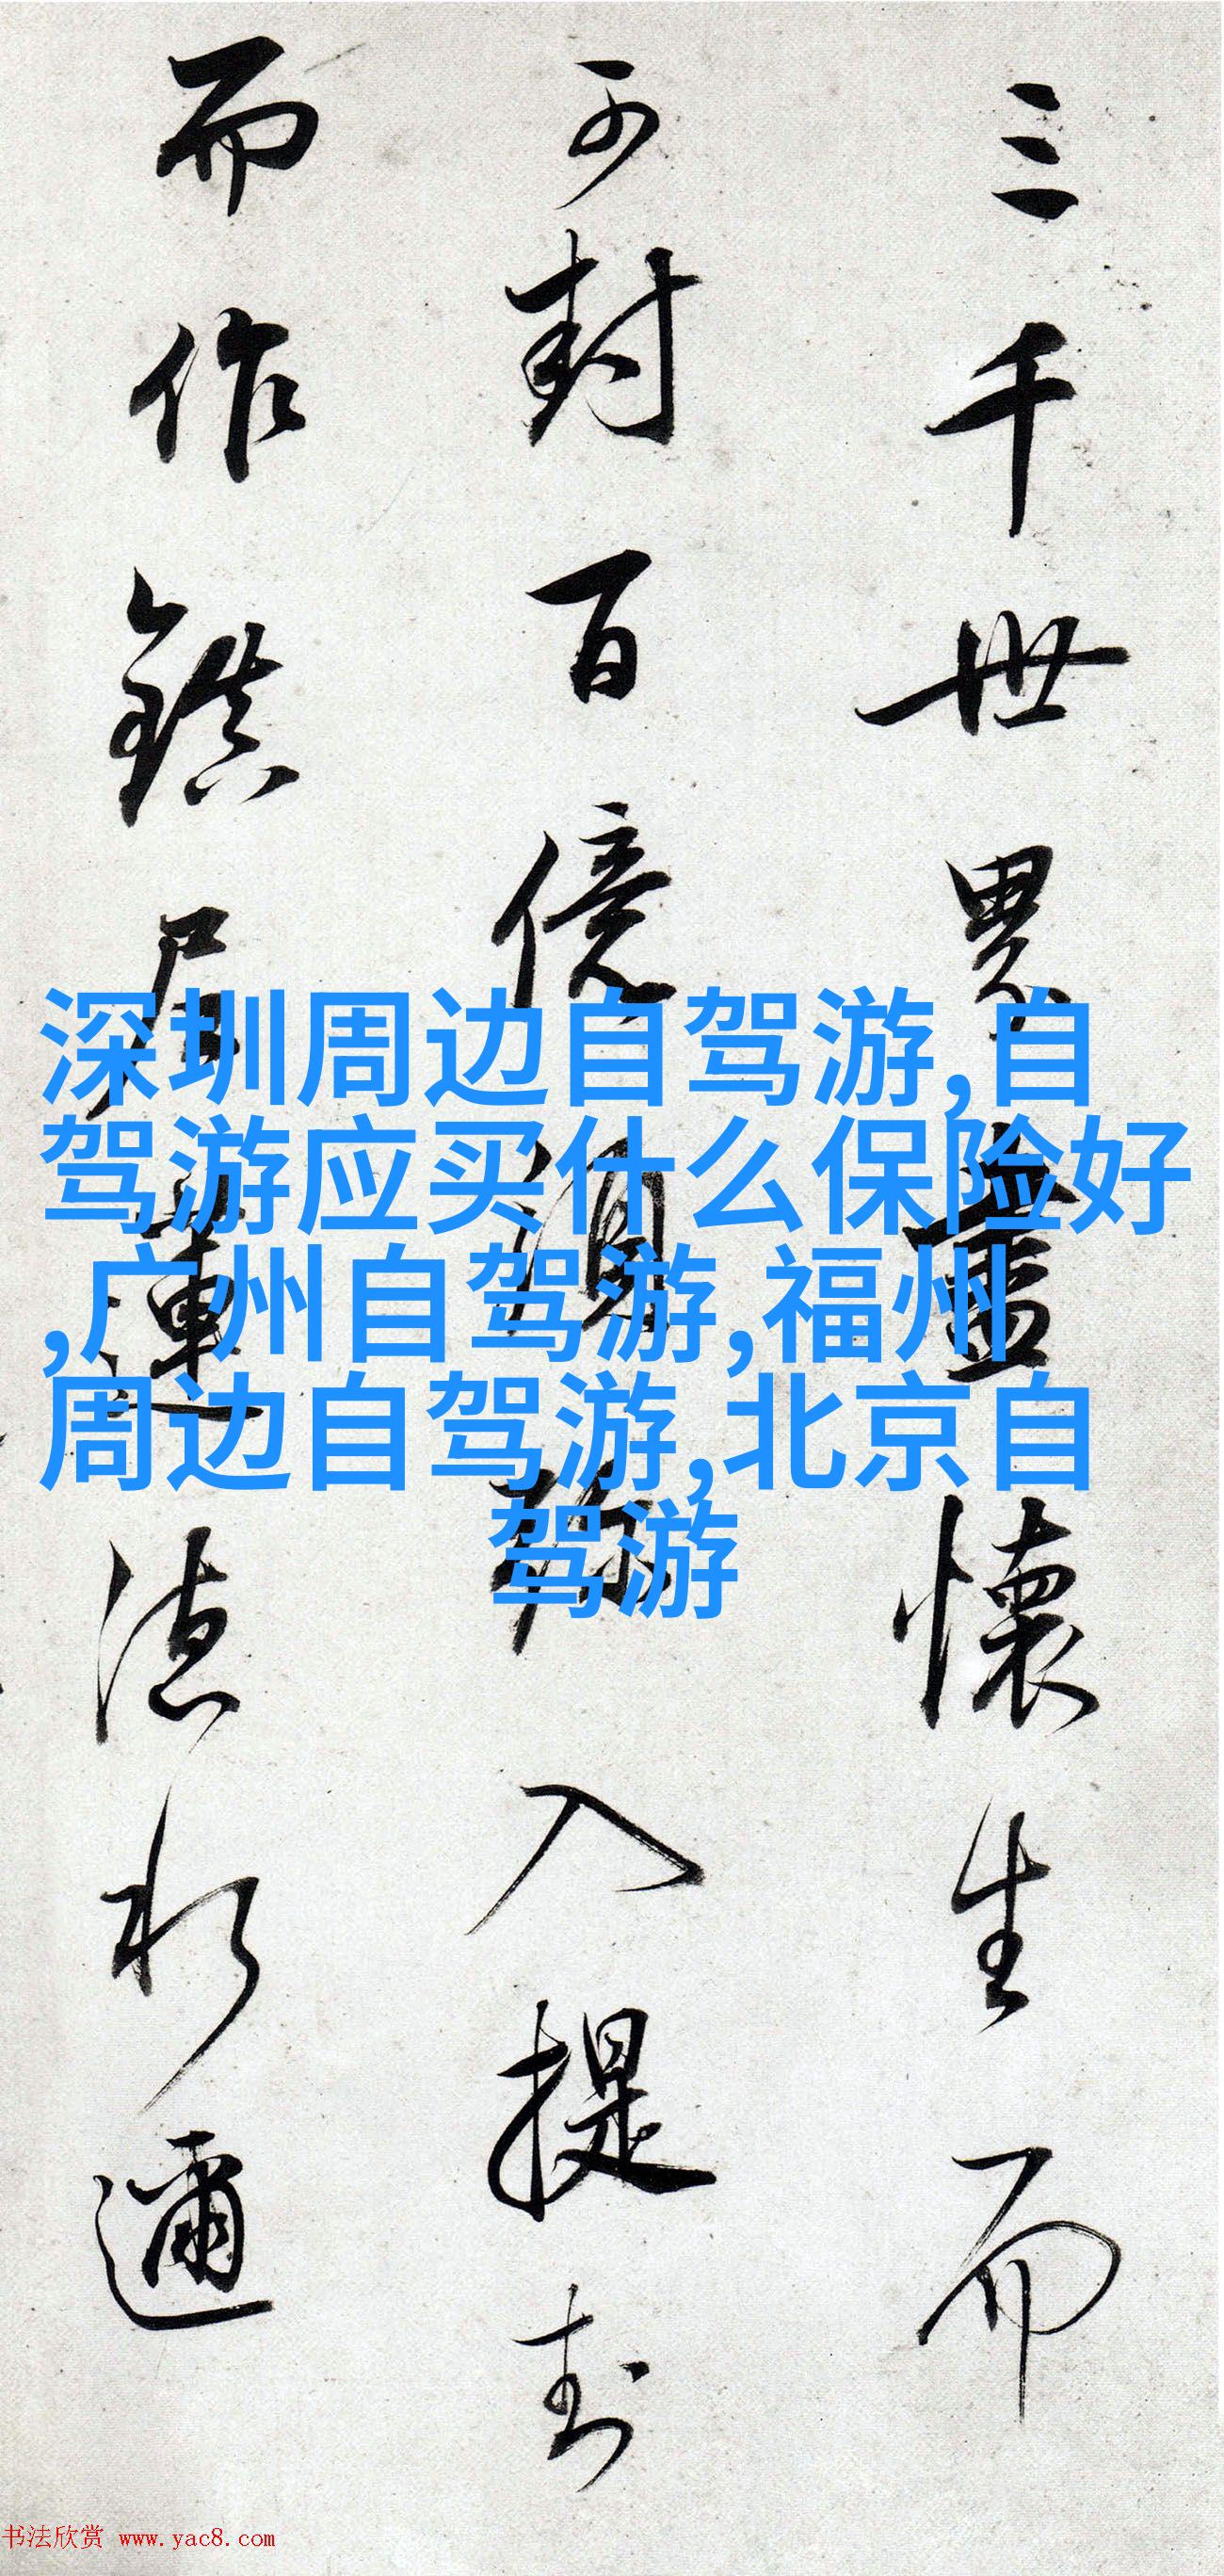 三千世界盡懷生而
可封百億須弥入提封
而作鎮尼連德水邇
深圳周边自驾游,自
驾游应买什么保险好
,广州自驾游,福州
周边自驾游,北京自
驾游
书法欣赏 www.yac8.com